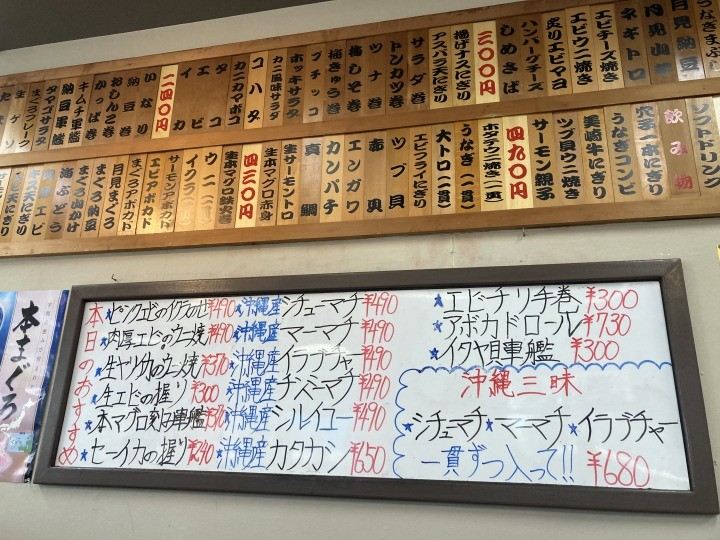 うなぎまぶし
月見納豆
月見山芋
ネギトロ
エビチーズ焼き
エビウニ焼き
炙りエビマヨ
ハンバーグチーズ
しめさば
三〇〇円
揚げナスにぎり
アスパラ天にぎり
サラダ巻
トンカツ巻
ツナ巻
梅しそ巻
梅きゅう巻
プチッコ
ホッキサラダ
カニ風味サラダ
カニカマボコ
コハダ
タコ
エビ
イカ
二四〇円
いなり
納豆巻
おしんこ巻
かっぱ巻
キムチ軍艦
納豆軍艦
タマゴサラダ
まぐろフレーク
生ゲソ
ソフトドリンク
飲み物
穴子一本にぎり
うなぎコンビ
美崎牛にぎり
ツブ貝ウニ焼き
サーモン親子
四九〇円
ホタテウニ焼き(一貫)
うなぎ(一貫)
大トロ(一貫)
エビフライにぎり
ツブ貝
赤貝
エンガワ
カンパチ
真鯛
生サーモントロ
生本マグロ赤身
四三〇円
生本マグロ鉄火巻
ウニ
イクラ
サーモンアボカド
エビアボカド
まぐろアボカド
月見まぐろ
まぐろ納豆
まぐろ山かけ
海ぶどう
キス天にぎり
エビ天にぎり
本まぐろ
本日のおすすめ
★ピンクエビのイクラのせ¥490
★肉厚エビのウニ焼¥490
★生ヤリイカのウニ焼¥570
★生エビの握り¥300
★本マグロ剥き身軍艦¥570
★セーイカの握り¥240
★沖縄産シチューマチ¥490
沖縄産マーマチ¥490
沖縄産イラブチャー¥490
沖縄産チンベーマチ¥490
沖縄産シルイユー¥490
沖縄産カタカシ¥650
★エビチリ手巻¥300
★アボカドロール¥730
★イクヤ貝軍艦¥300
沖縄三昧
★シチューマチ★マーマチ★イラブチャー
一貫ずつ入って!!¥680